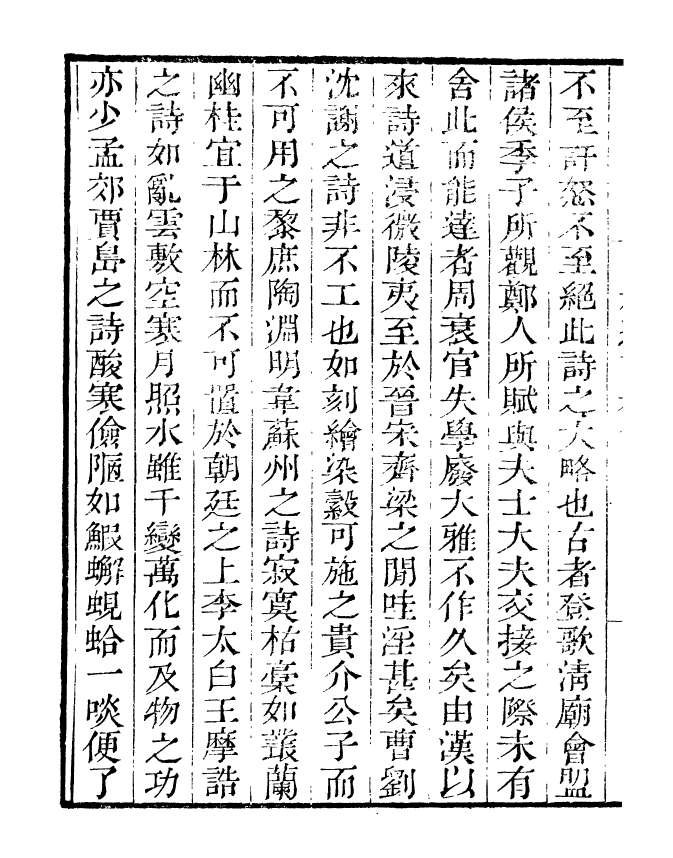 不至訐怒不至絕此詩之大略也古者登歌清廟會盟
諸侯季子所觀鄭人所賦與夫士大夫交接之際未有
舍此而能達者周衰官失學廢大雅不作久矣由漢以
來詩道浸微陵夷至於晉宋齊梁之間哇淫甚矣曹劉
沈謝之詩非不工也如刻繪染縠可施之貴介公子而
不可用之黎庶陶淵明韋蘇州之詩寂寞枯槀如叢蘭
幽桂宜于山林而不可置於朝廷之上李太白王摩詰
之詩如亂雲敷空寒月照水雖千變萬化而及物之功
亦少孟郊賈島之詩酸寒儉陋如鰕蠏蜆蛤一啖便了